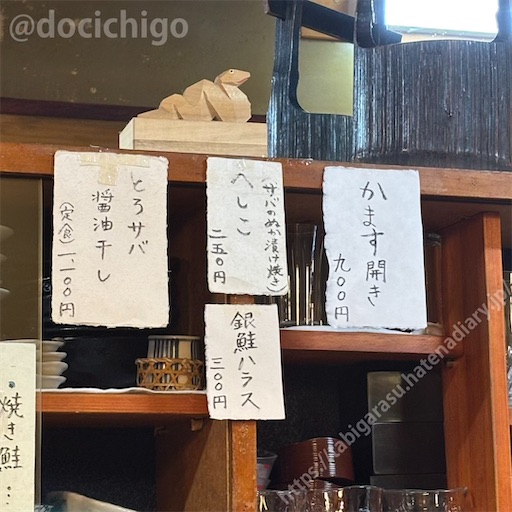 @docichigo
かます開き
九〇〇円
へしこ
(サバのぬか漬け焼き)
二五〇円
銀鮭ハラス
三〇〇円
とろサバ
醤油干し
(定食)一、一〇〇円
焼き鮭
https://kabigarasu.hatenadiary.jp/